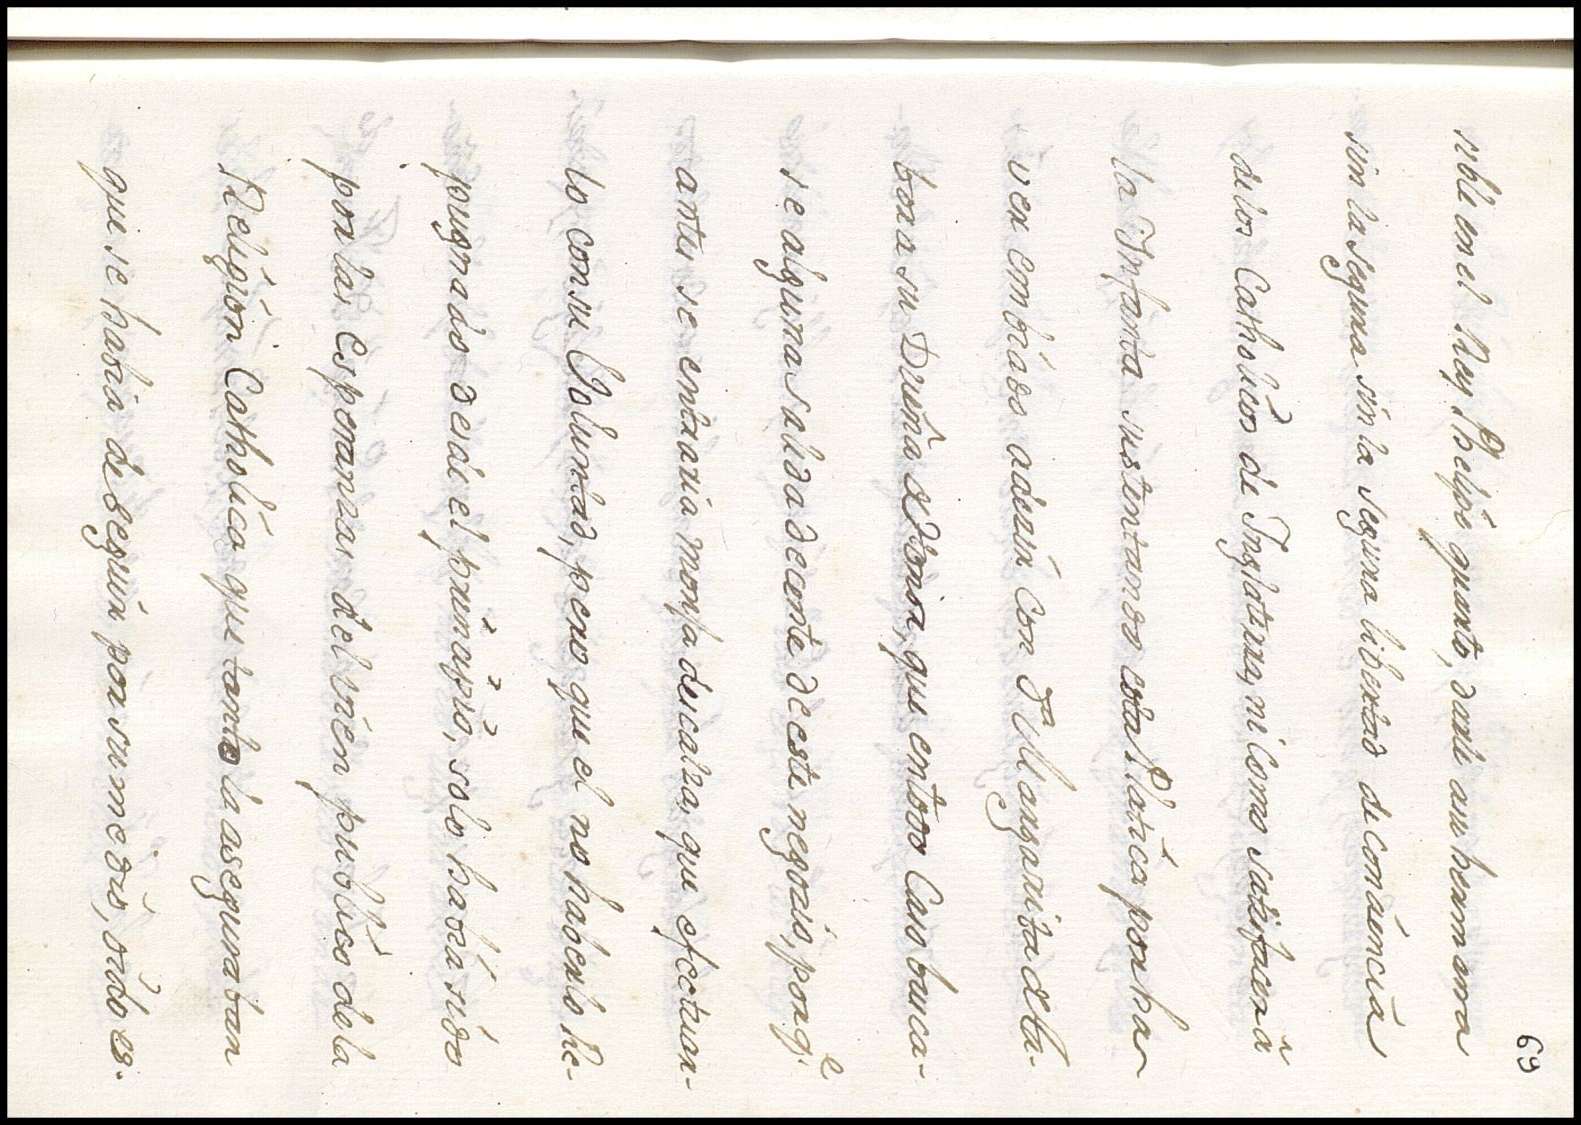 69
sible en el Rey Phelipe quarto, darle a su hermana
sin la segura sin la segura libertad de conciencia
de los Catholicos de Inglaterra, ni como satisfacer à
la Infanta sustentando esta Platica por ha-
ver embiado a decir con Dª Margarita de ta-
bora su Dueña de Honor, que en todo Caso busca-
se alguna salida decente de este negozio, porq.e
antes se entraria monja descalza, que efectuar-
lo con su Voluntad, pero que el no haberlo re-
pugnado desde el principio, solo habia sido
por las esperanzas del bien publico de la
Religion Catholica que tanto la aseguraban
que se habia de seguir por su medio, oido es-